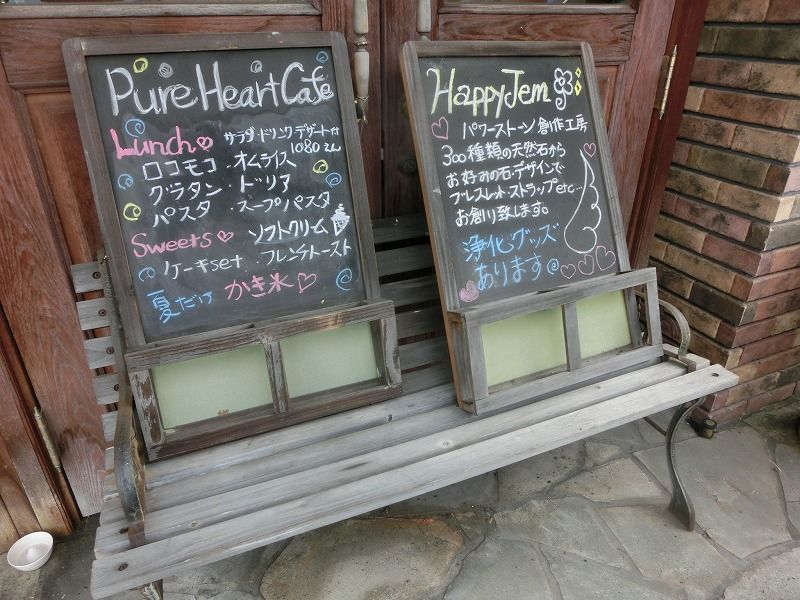 Pure Heart Cafe
Lunch
サラダ・ドリンク・デザート付
1080えん
ロコモコ・オムライス
グラタン・ドリア
パスタ・スープパスタ
Sweets ソフトクリーム
ケーキset・フレンチトースト
夏だけ かき氷
Happy Jem
パワーストーン創作工房
300種類の天然石から
お好みの石・デザインで
ブレスレット・ストラップetc…
お創り致します。
浄化グッズ
あります